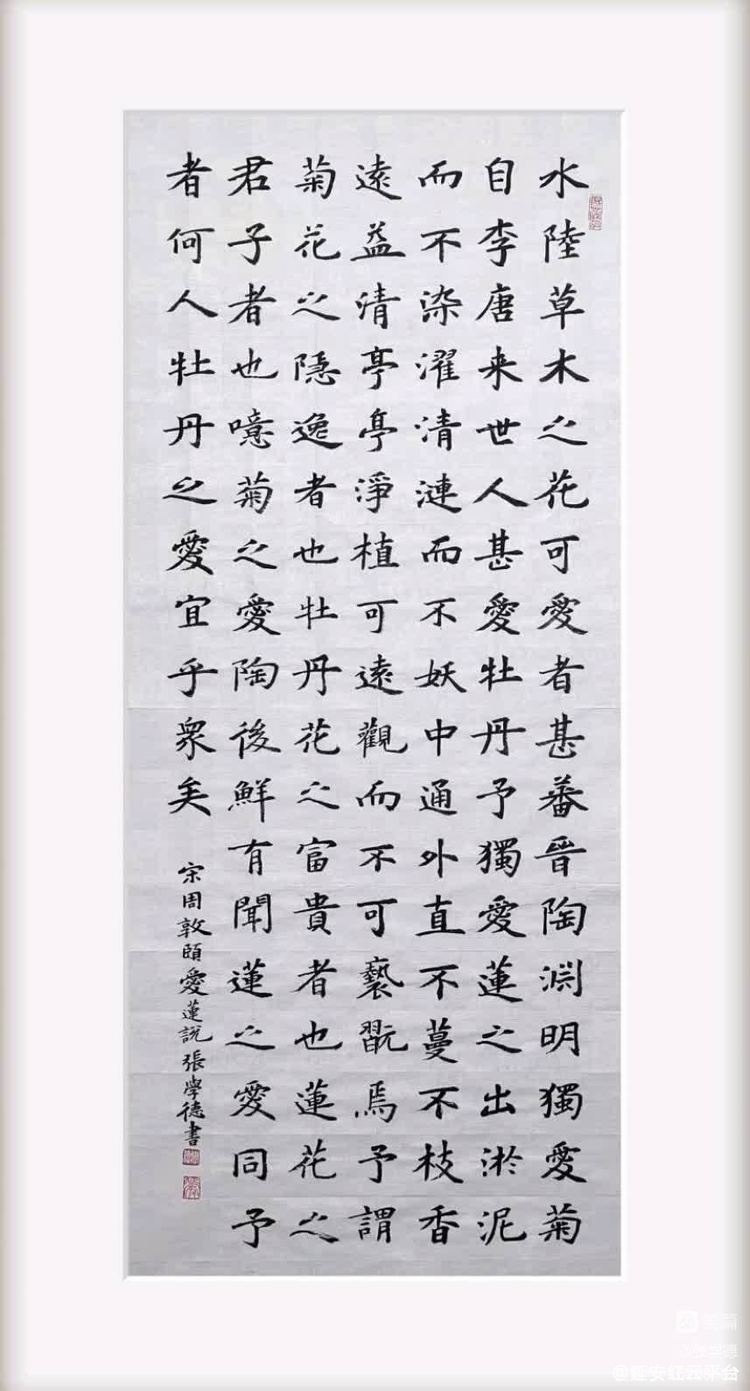 水陸草木之花可愛者甚蕃晉陶渊明獨愛菊
自李唐来世人甚愛牡丹予獨愛蓮之出淤泥
而不染濯清漣而不妖中通外直不蔓不枝香
遠益清亭亭淨植可遠觀而不可褻翫焉予謂
菊花之隱逸者也牡丹花之富貴者也蓮花之
君子者也噫菊之愛陶後鮮有聞蓮之愛同予
者何人牡丹之愛宜乎衆矣
宋周敦頤愛蓮說張學德書
美篇